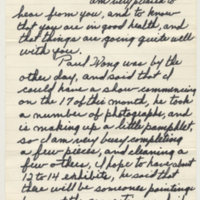 am very pleased to
hear from you, and to know
that you are in good health, and
that things are going quite well
with you.
Paul Wong was by the
other day, and said that I
could have a show commencing
on the 17 of this month, he took
a number of photographs, and
is making up a little pamphlet,
so I am very busy completing
a few pieces, and cleaning a
few others, I hope to have about
12 to 14 exhibits, he said that
there will be someones paintings